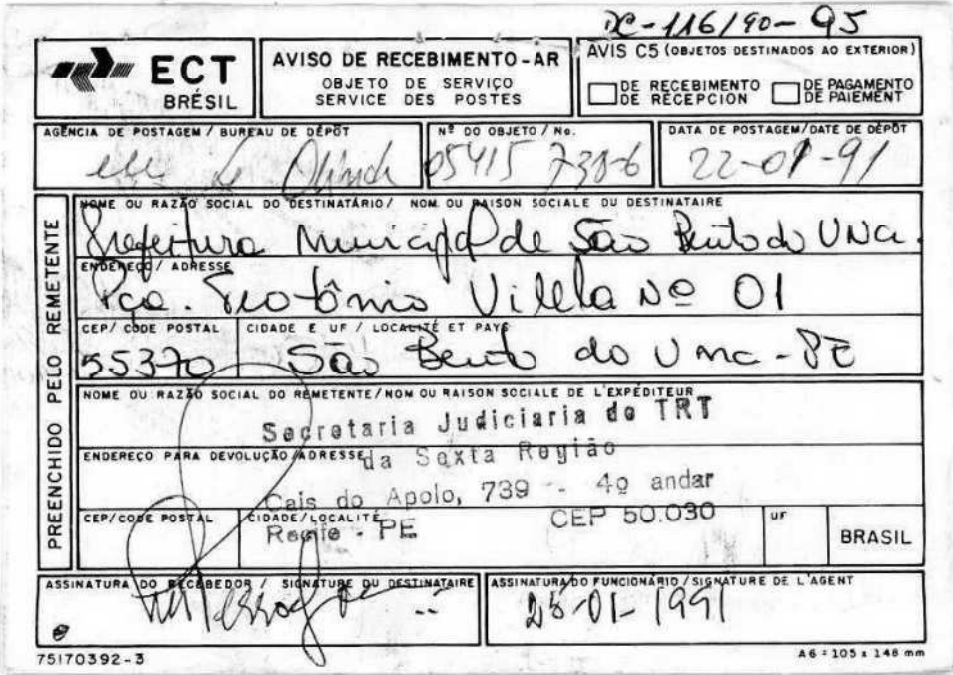 DC-116/90-95
ECT
BRÉSIL
AVISO DE RECEBIMENTO-AR
OBJETO DE SERVIÇO
SERVICE DES POSTES
AVIS C5 (OBJETOS DESTINADOS AO EXTERIOR)
DE RECEBIMENTO
DE RÉCEPCION
DE PAGAMENTO
DE PAIEMENT
AGÊNCIA DE POSTAGEM / BUREAU DE DÉPÔT
Nº DO OBJETO / No.
05415 738-6
DATA DE POSTAGEM/DATE DE DÉPÔT
22-01-91
PREENCHIDO PELO REMETENTE
NOME OU RAZÃO SOCIAL DO DESTINATÁRIO / NOM OU RAISON SOCIALE DU DESTINATAIRE
Prefeitura Municipal de São Bento do Una.
ENDEREÇO / ADRESSE
Pça. Teotônio Vilela Nº 01
CEP/ CODE POSTAL
55370
CIDADE E UF / LOCALITÉ ET PAYS
São Bento do Una - PE
NOME OU RAZÃO SOCIAL DO REMETENTE/NOM OU RAISON SOCIALE DE L'EXPÉDITEUR
Secretaria Judiciaria do TRT
ENDEREÇO PARA DEVOLUÇÃO/ADRESSE
da Sexta Região
Cais do Apolo, 739 - 4º andar
CEP/CODE POSTAL
CIDADE/LOCALITÉ
Recife - PE
CEP 50.030
UF
BRASIL
ASSINATURA DO RECEBEDOR / SIGNATURE DU DESTINATAIRE
ASSINATURA DO FUNCIONÁRIO / SIGNATURE DE L'AGENT
25-01-1991
75170392-3
A6 = 105 x 148 mm